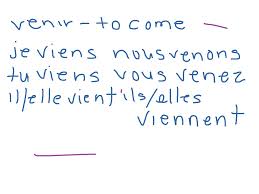 venir - to come
je viens nous venons
tu viens vous venez
il/elle vient ils/elles
viennent